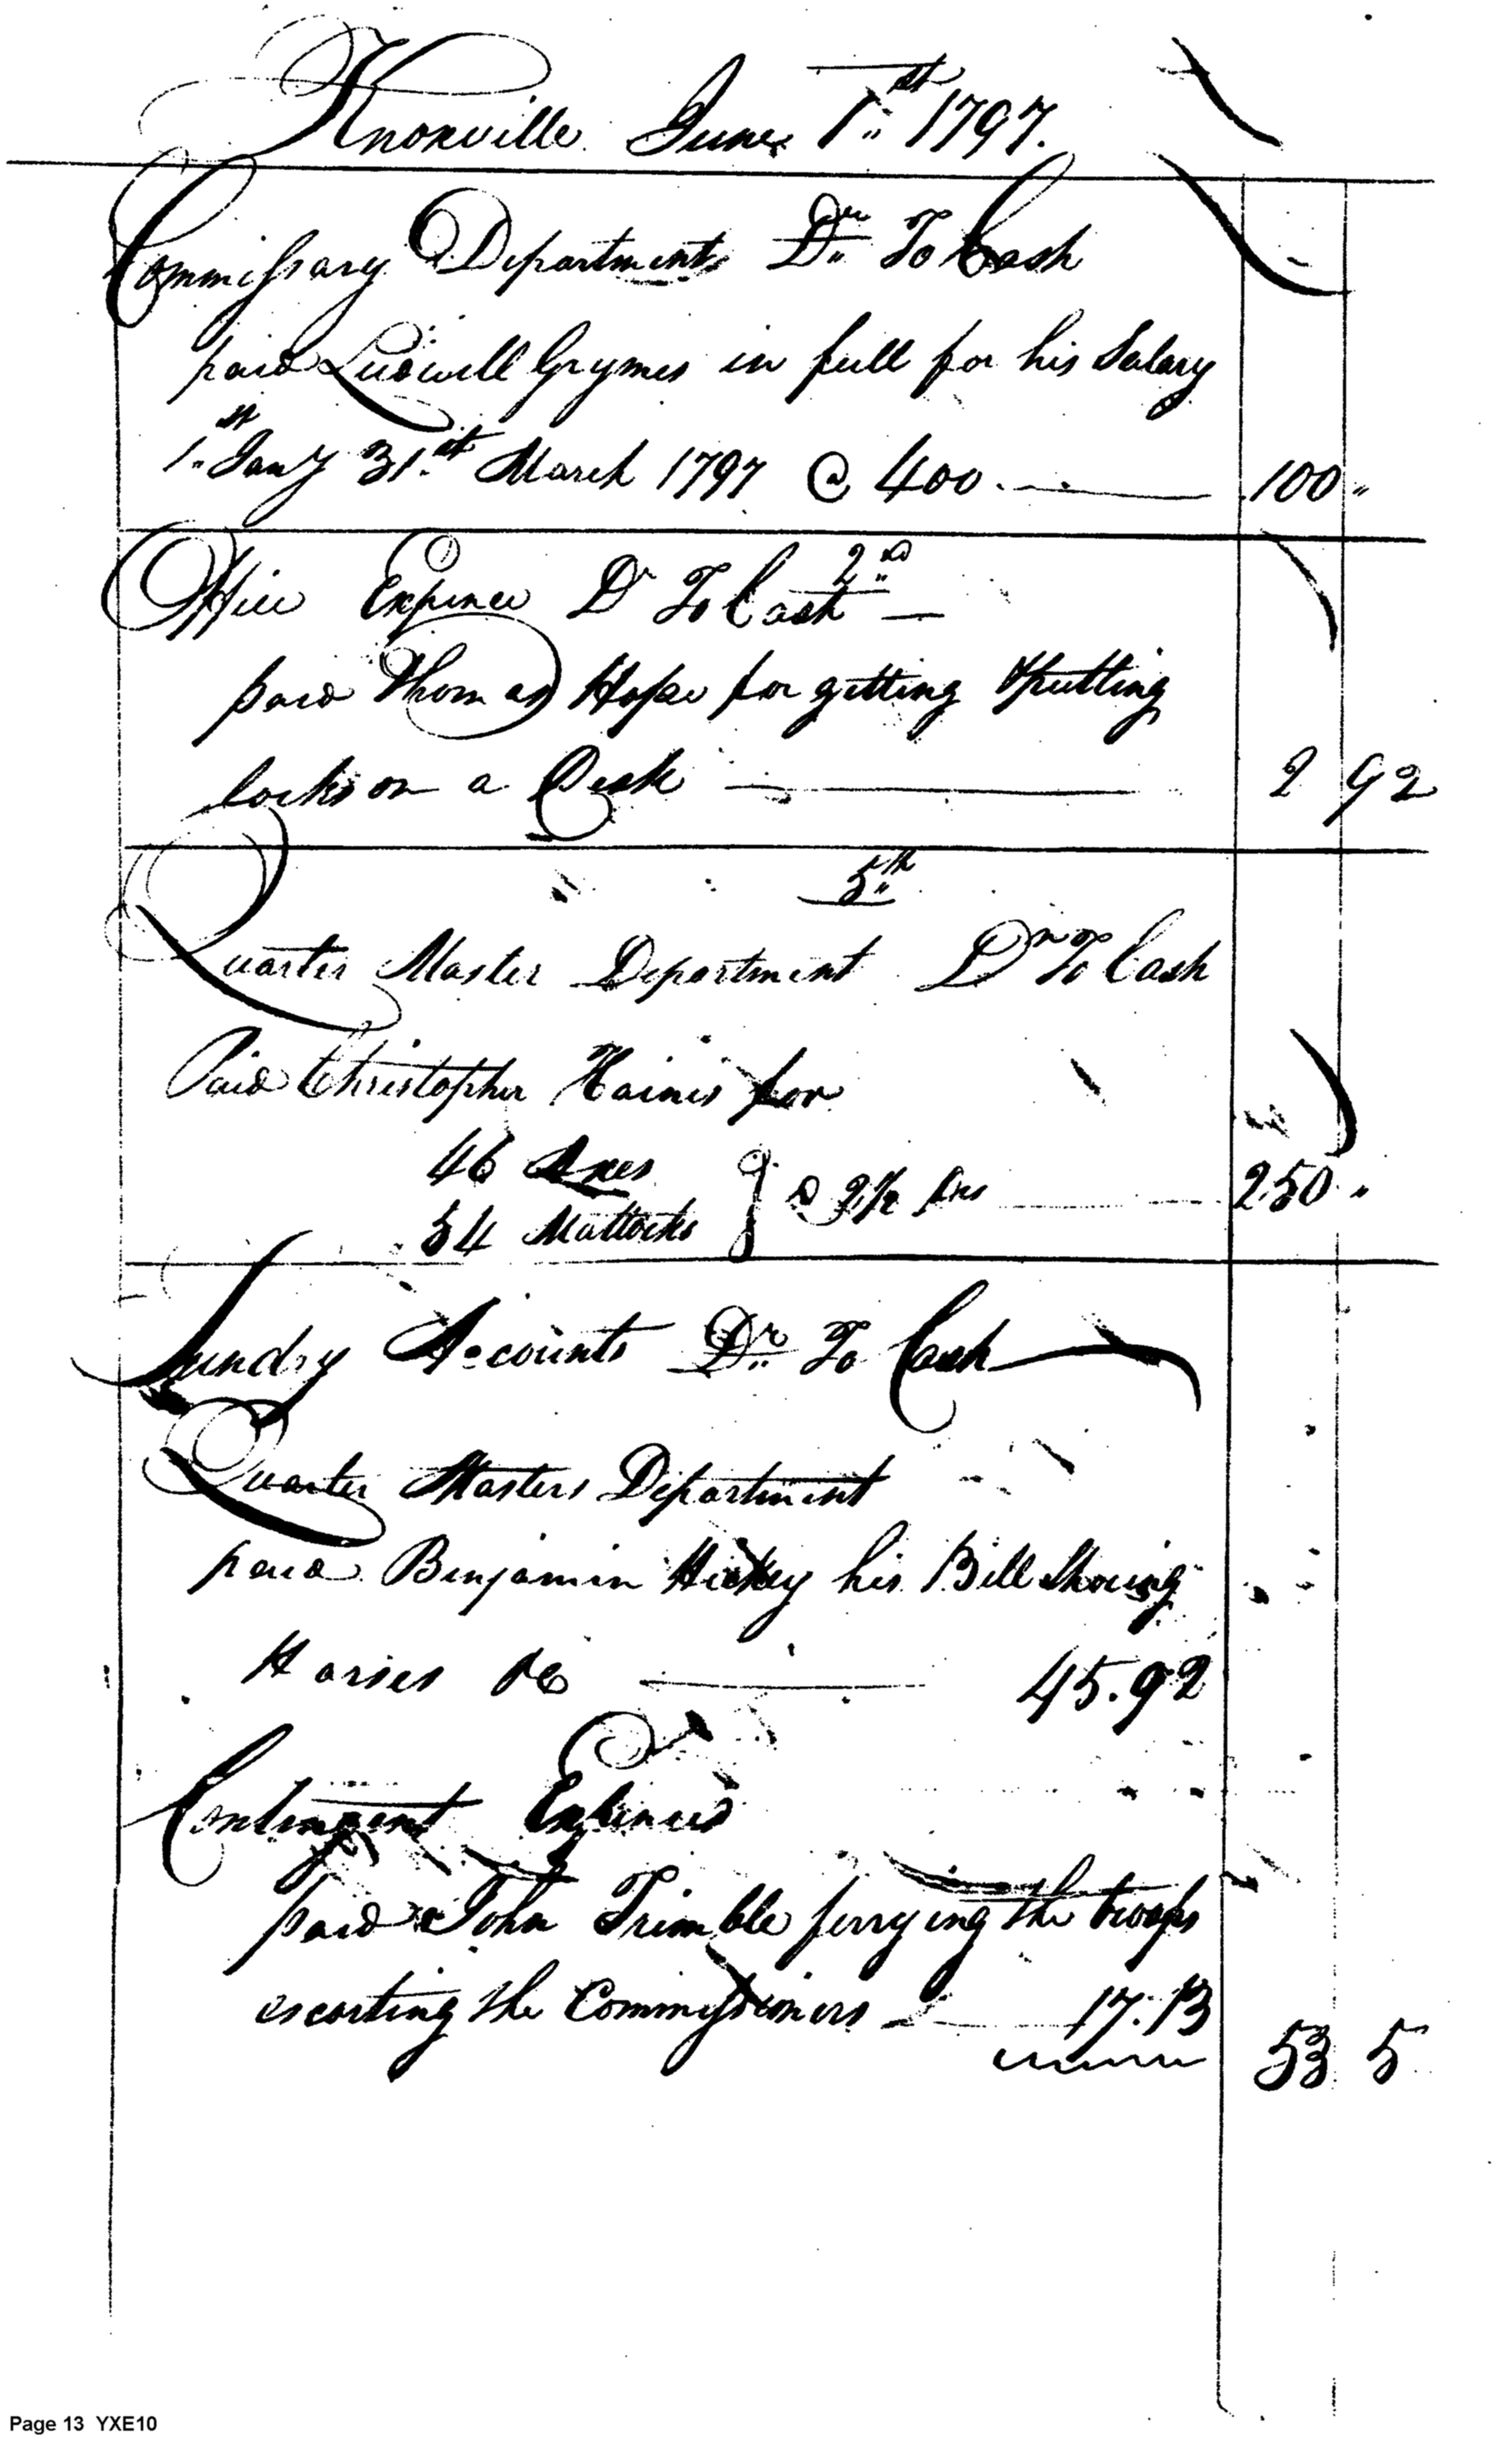 Knoxville June 1st 1797.
Commissary Department Dr. To Cash
paid Ludwell Grymes in full for his Salary
1st Jany 31st March 1797 @ 400 100 "
2nd
Office Expence Dr To Cash
paid Thomas Hope for getting & putting
locks on a Desk 2 92
5th
Quarter Master Department Dr To Cash
Paid Christopher Haines for
46 Axes
54 Mattocks } @ 2½ Drs 250 "
Sundry Accounts Dr. To Cash
Quarter Masters Department
paid Benjamin Hickey his Bill Shoeing
Horses &c 45.92
Contingent Expences
paid John Trimble ferrying the troops
escorting the Commissioners 17.13
53 5
Page 13 YXE10